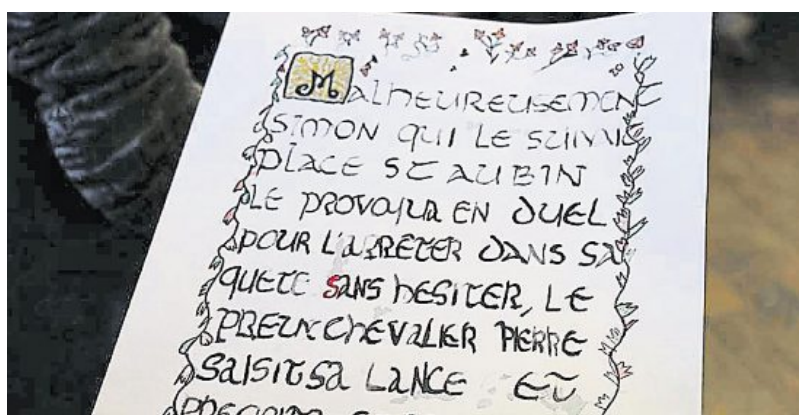 MALHEUREUSEMENT
SIMON QUI LE SUIVIT
PLACE ST AUBIN
LE PROVOQUA EN DUEL
POUR L'ARRÊTER DANS SA
QUETE SANS HESITER, LE
PREUX CHEVALIER PIERRE
SAISIT SA LANCE ET